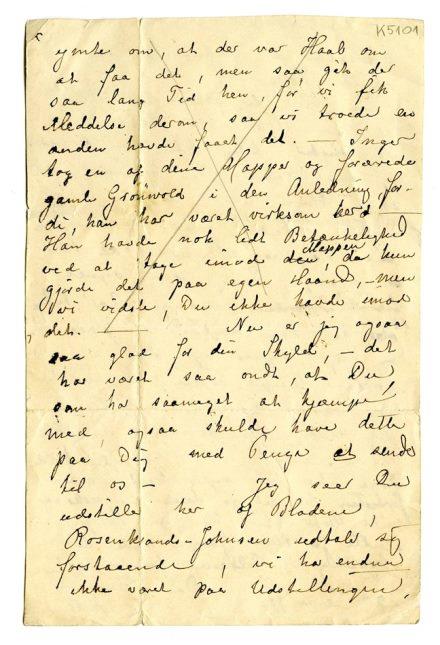 K5101
ymte om, at der var Haab om
at faa det, men saa gik der
saa lang Tid hen, før vi fik
Meddelse derom, saa vi troede en
anden havde faaet det. — Inger
tog en af dine Mapper og forærede
gamle Grönvold i den Anledning, for-
di, han har været virksom
Han havde nok lidt Betænkelighed
ved at tage imod den, da hun
Mappen
gjorde det paa egen Haand, — men
vi vidste, Du ikke havde imod
det. — Nu er jeg ogsaa
saa glad for din Skyld, — det
har været saa ondt, at Du
som har saameget at kjæmpe
med, ogsaa skulde have dette
paa Dig med Penge at sende
til os — Jeg seer Du
udstiller her af Bladene,
Rosenkrands-Johnsen udtaler sig
forstaaende, vi ha endnu
ikke været paa Udstillingen.